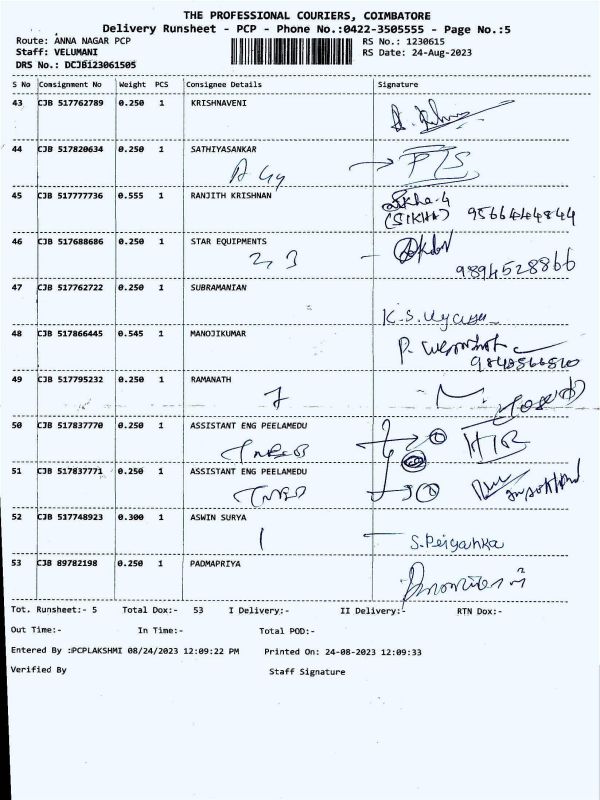 THE PROFESSIONAL COURIERS, COIMBATORE
Delivery Runsheet - PCP - Phone No.:0422-3505555 - Page No.:5
Route: ANNA NAGAR PCP RS No.: 1230615
Staff: VELUMANI RS Date: 24-Aug-2023
DRS No.: DCJB123061505
S No Consignment No Weight PCS Consignee Details Signature
43 CJB 517762789 0.250 1 KRISHNAVENI
44 CJB 517820634 0.250 1 SATHIYASANKAR
45 CJB 517777736 0.555 1 RANJITH KRISHNAN
(SIKHA) 9566444844
46 CJB 517688686 0.250 1 STAR EQUIPMENTS
2, 3
9894528866
47 CJB 517762722 0.250 1 SUBRAMANIAN
48 CJB 517866445 0.545 1 MANOJIKUMAR
49 CJB 517795232 0.250 1 RAMANATH
7
50 CJB 517837770 0.250 1 ASSISTANT ENG PEELAMEDU
51 CJB 517837771 0.250 1 ASSISTANT ENG PEELAMEDU
52 CJB 517748923 0.300 1 ASWIN SURYA
S.Peiyanka
53 CJB 89782198 0.250 1 PADMAPRIYA
Tot. Runsheet:- 5 Total Dox:- 53 I Delivery:- II Delivery:- RTN Dox:-
Out Time:- In Time:- Total POD:-
Entered By :PCPLAKSHMI 08/24/2023 12:09:22 PM Printed On: 24-08-2023 12:09:33
Verified By Staff Signature